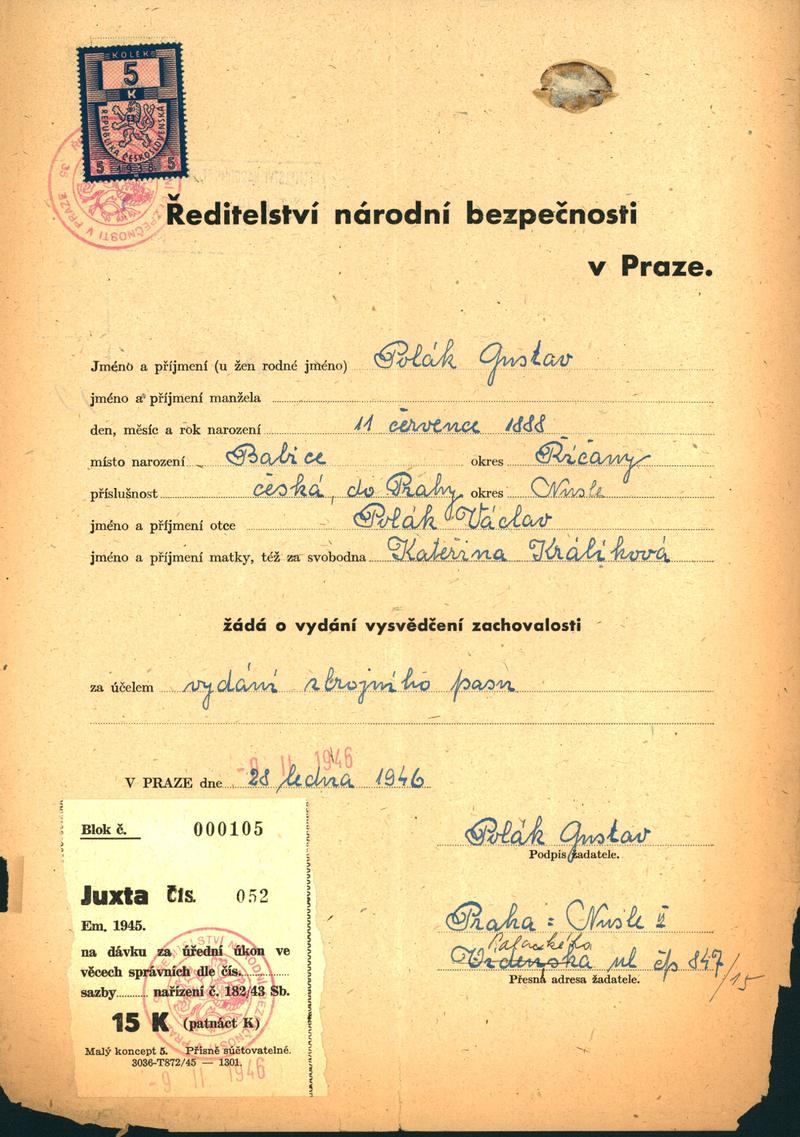 KOLEK
5
K
REPUBLIKA ČESKOSLOVENSKÁ
5 1938 5
Ředitelství národní bezpečnosti
v Praze.
Jméno a příjmení (u žen rodné jméno) Polák Gustav
jméno a příjmení manžela
den, měsíc a rok narození 11 července 1888
místo narození Babice okres Říčany
příslušnost česká, do Prahy okres Nusle
jméno a příjmení otce Polák Václav
jméno a příjmení matky, též za svobodna Kateřina Králíková
žádá o vydání vysvědčení zachovalosti
za účelem vydání zbrojního pasu
-9 II 1946
V PRAZE dne 28 ledna 1946
Polák Gustav
Podpis žadatele.
Praha: Nusle II
Palackého
ul čp 847/15
Přesná adresa žadatele.
Blok č. 000105
Juxta čís. 052
Em. 1945.
na dávku za úřední úkon ve
věcech správních dle čís.
sazby nařízení č. 182/43 Sb.
15 K (patnáct K)
Malý koncept 5. Přísně súčtovatelné.
3036-T872/45 — 1301.
-9 II 1946